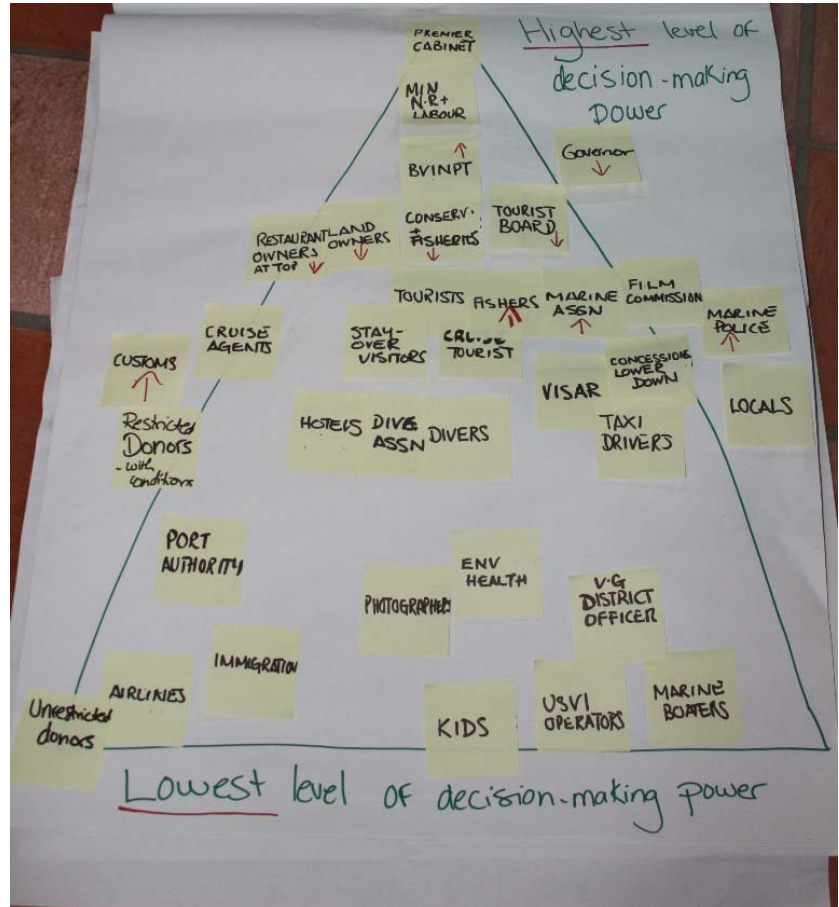 PREMIER
CABINET
Highest level of
decision-making
power
MIN
N.R+
LABOUR
BVINPT
Governor
RESTAURANT
OWNERS
AT TOP
LAND
OWNERS
CONSERV.
+
FISHERIES
TOURIST
BOARD
TOURISTS
FISHERS
MARINE
ASSN
FILM
COMMISSION
MARINE
POLICE
CUSTOMS
CRUISE
AGENTS
STAY-
OVER
VISITORS
CRUISE
TOURIST
VISAR
CONCESSIONS
LOWER
DOWN
LOCALS
Restricted
Donors
-with
conditions
HOTELS
DIVE
ASSN
DIVERS
TAXI
DRIVERS
PORT
AUTHORITY
PHOTOGRAPHERS
ENV
HEALTH
V.G
DISTRICT
OFFICER
IMMIGRATION
AIRLINES
Unrestricted
donors
KIDS
USVI
OPERATORS
MARINE
BOATERS
Lowest level of decision-making power